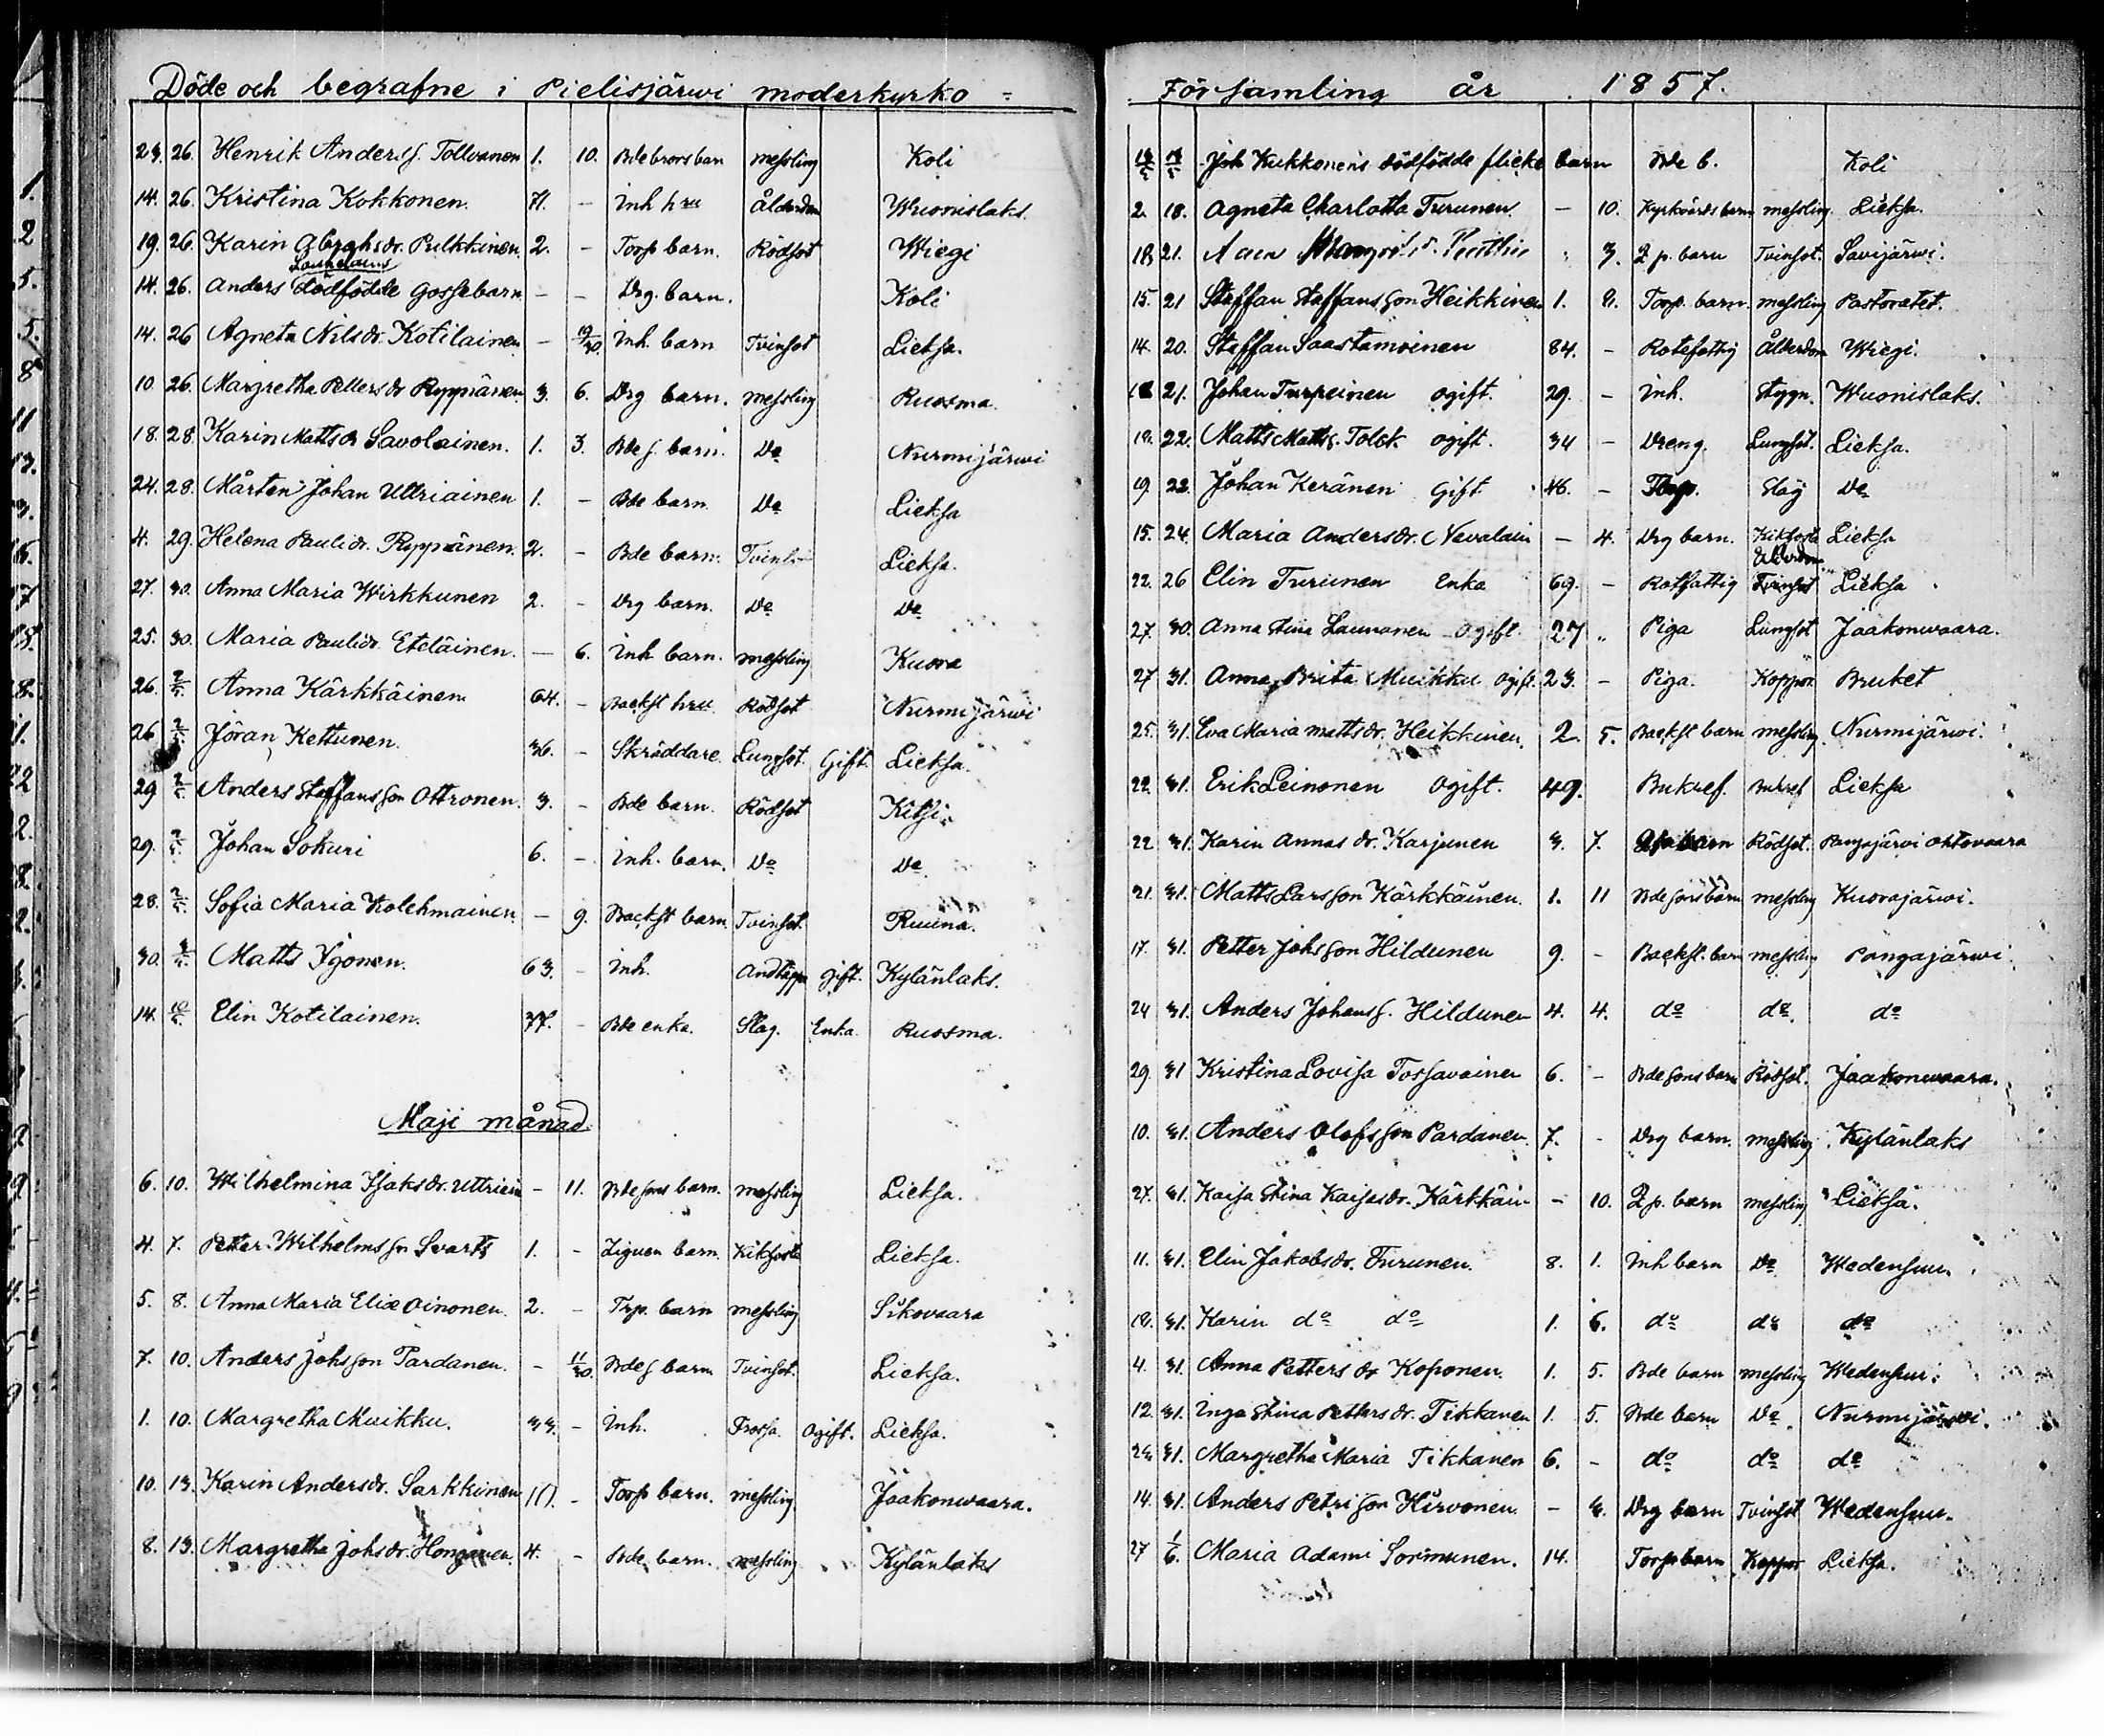 Döde och begrafne i Pielisjärwi moderkyrko =
23. 26. Henrik Anderss. Tollvanen 1. 10. Bde brors barn messling Koli
14. 26. Kristina Kokkonen. 71. - Inh hru Ålderdom Wuonislaks.
19. 26. Karin Abrahsdr. Pulkkinen. 2. - Torp barn. Rödsot Wiegi
14. 26. Anders dödfödde gossebarn - - Drg. barn. Koli
14. 26 Agneta Nilsdr. Kotilainen - 19/30. Inh. barn Tvinsot Lieksa.
10 26. Margretha Pettersdr Ryppänen. 3. 6. Drg barn. messling Ruosma.
18. 28. Karin Mattsdr Savolainen. 1. 3. Bde s. barn. Do Nurmijärwi
24. 28. Mårten Johan Uttriainen 1. - Bde barn. Do Lieksa
4. 29. Helena Paulidr. Ryppänen. 2. - Bde barn. Tvinsot Lieksa.
27. 30. Anna Maria Wirkkunen 2. - Drg barn. Do Do
25. 30. Maria Paulidr. Eteläinen. - 6. Inh barn. messling Kuora
26. 2/5. Anna Kärkkäinen 64. - Backst hru Rödsot Nurmijärwi
26 2/5. Jöran Kettunen. 36. - Skräddare. Lungsot. Gift. Lieksa.
29 2/5. Anders Staffansson Ottronen. 3. - Bde barn. Rödsot Kitsi.
29. 2/5. Johan Sokuri 6. - Inh. barn. Do Do.
28. 2/5. Sofia Maria Kolehmainen - 9. Backst barn. Tvinsot. Ruuna.
30. 3/5. Matts Ygonen. 63. - Inh. Andtäppa gift. Kylänlaks.
14. 10/5. Elin Kotilainen. 77. - Bde enka. Slag. Enka. Ruosma.
Maji månad.
6. 10. Wilhelmina Isaksdr. Uttriain - 11. Bde sons barn. messling Lieksa.
4. 7. Petter Wilhelmsson Svarts 1. - Ziguen barn. Kikhosta Lieksa.
5. 8. Anna Maria Eliæ Oinonen. 2. - Trp. barn messling Sikovaara
7. 10. Anders Johsson Pardanen. - 11/30. Bde s barn Tvinsot. Lieksa.
1. 10. Margretha Muikku. 33. - Inh. Frossa. Ogift. Lieksa.
10. 13. Karin Andersdr. Sarkkinen 10. - Torp barn. messling Jaakonwaara.
8. 13. Margretha Johsdr. Honganen. 4. - Bde barn. messling Kylänlaks
Församling år 1857.
Joh Kukkonens dödfödde flicke barn Bde b. Koli
2. 18. Agneta Charlotta Turunen. - 10. Kyrkvärds barn messling. Lieksa.
18 21. 3. Z p. barn Tvinsot. Savijärwi.
15. 21 Staffan Staffansson Heikkinen 1. 8. Torp. barn. messling Pastoratet.
14. 20. Staffan Saastamoinen 84. - Rotefattig Ålderdom Wiegi.
18 21. Johan Turpeinen ogift. 29. - Inh. Stygn. Wuonislaks.
18. 22. Matts Matts. Tolok ogift. 34 - Dreng. Lungsot. Lieksa.
19 22. Johan Keränen Gift 46. - Torp. Slag Do
15. 24. Maria Andersdr. Nevalain - 4. Drg barn. Kikhosta Lieksa
22. 26 Elin Turunen Enka 69. - Rotfattig Ålderdom Tvinsot Lieksa
27. 30. Anna Stina Launonen Ogift. 27 „ Piga Lungsot Jaakonwaara.
27 31. Anna Brita Muikku ogift. 23. - Piga. Koppor Bruket
25. 31. Eva Maria Mattsdr. Heikkinen. 2. 5. Backst barn messling. Nurmijärwi.
22. 31. Erik Leinonen Ogift. 49. Bukref. Bukref Lieksa
22 31. Karin Annas dr. Karjunen 3. 7. barn Rödsot. Pangajärvi Ohtovaara
21. 31. Matts Larsson Kärkkäinen. 1. 11 Bde sons barn messling Kuorajärwi.
17. 31. Petter Johsson Hildunen 9. - Backst. barn messling Pangajärwi.
24 31. Anders Johanss. Hildunen 4. 4. do do. do
29. 31 Kristina Lovisa Tossavainen 6. - Bde sons barn Rödsot. Jaakonwaara.
10. 31. Anders Olofsson Pardanen. 7. - Drg barn. messling Kylänlaks
27. 31. Kaisa Stina Kaisasdr. Kärkkäin - 10. Z p. barn messling Lieksa.
11. 31. Elin Jakobsdr. Turunen. 8. 1. Inh barn Do Wedensuu.
18. 31. Karin do do 1. 6. do do do
4. 31. Anna Petters dr Koponen. 1. 5. Bde barn messling Wedensuu.
12. 31. Inga Stina Pettersdr. Tikkanen 1. 5. Bde barn Do. Nurmijärwi.
31. Margretha Maria Tikkanen 6. - do do do
14. 31. Anders Petrisson Hirvonen. - 3. Drg barn Tvinsot Wedensuu.
27 1/6. Maria Adami Sormunen. 14. Torp barn Koppor Lieksa.